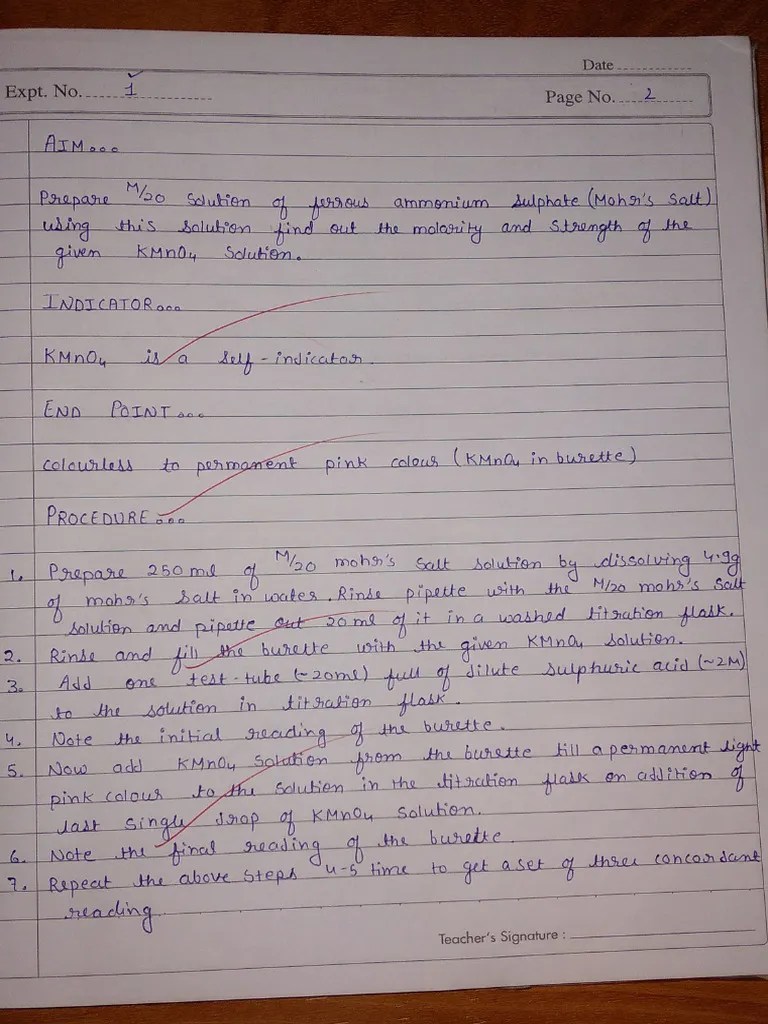 Date
Expt. No. 1
Page No. 2
AIM...
Prepare M/20 solution of ferrous ammonium sulphate (Mohr's salt)
using this solution find out the molarity and strength of the
given KMnO4 solution.
INDICATOR...
KMnO4 is a self-indicator.
END POINT...
colourless to permanent pink colour (KMnO4 in burette)
PROCEDURE...
1. Prepare 250 ml of M/20 mohr's salt solution by dissolving 4.9g
of mohr's salt in water. Rinse pipette with the M/20 mohr's salt
solution and pipette out 20 ml of it in a washed titration flask.
2. Rinse and fill the burette with the given KMnO4 solution.
3. Add one test-tube (~20ml) full of dilute sulphuric acid (~2M)
to the solution in titration flask.
4. Note the initial reading of the burette.
5. Now add KMnO4 solution from the burette till a permanent light
pink colour to the solution in the titration flask on addition of
last single drop of KMnO4 solution.
6. Note the final reading of the burette.
7. Repeat the above steps 4-5 time to get a set of three concordant
reading.
Teacher's Signature :